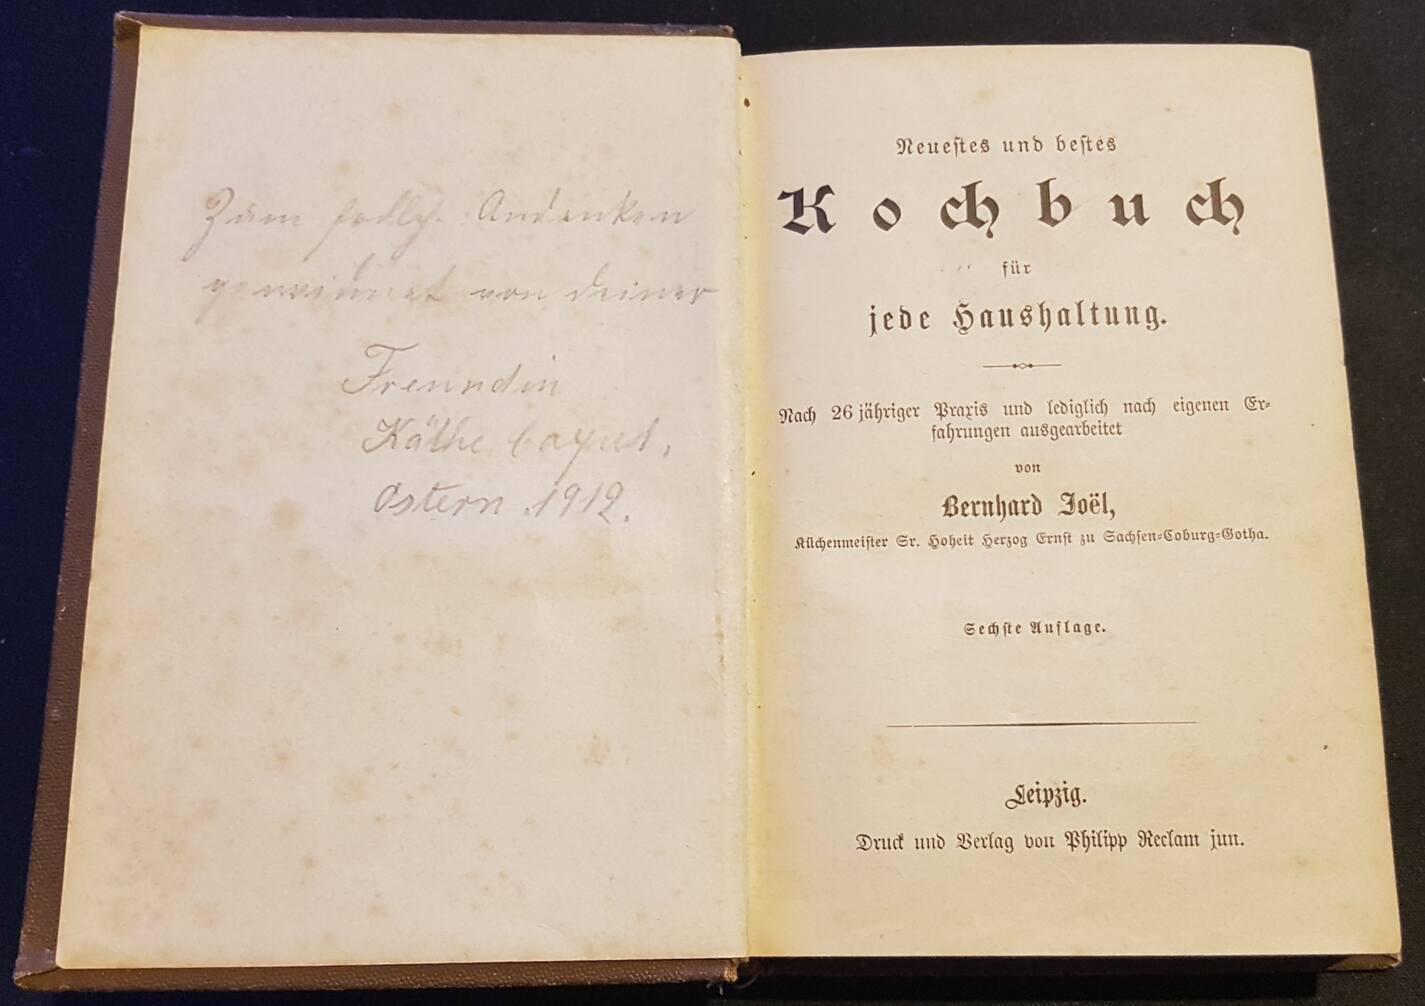 Zum frdlch. Andenken
gewidmet von deiner
Freundin
Käthe
Ostern 1912.
Neuestes und bestes
Kochbuch
für
jede Haushaltung.
Nach 26jähriger Praxis und lediglich nach eigenen Er-
fahrungen ausgearbeitet
von
Bernhard Joël,
Küchenmeister Sr. Hoheit Herzog Ernst zu Sachsen-Coburg-Gotha.
Sechste Auflage.
Leipzig.
Druck und Verlag von Philipp Reclam jun.